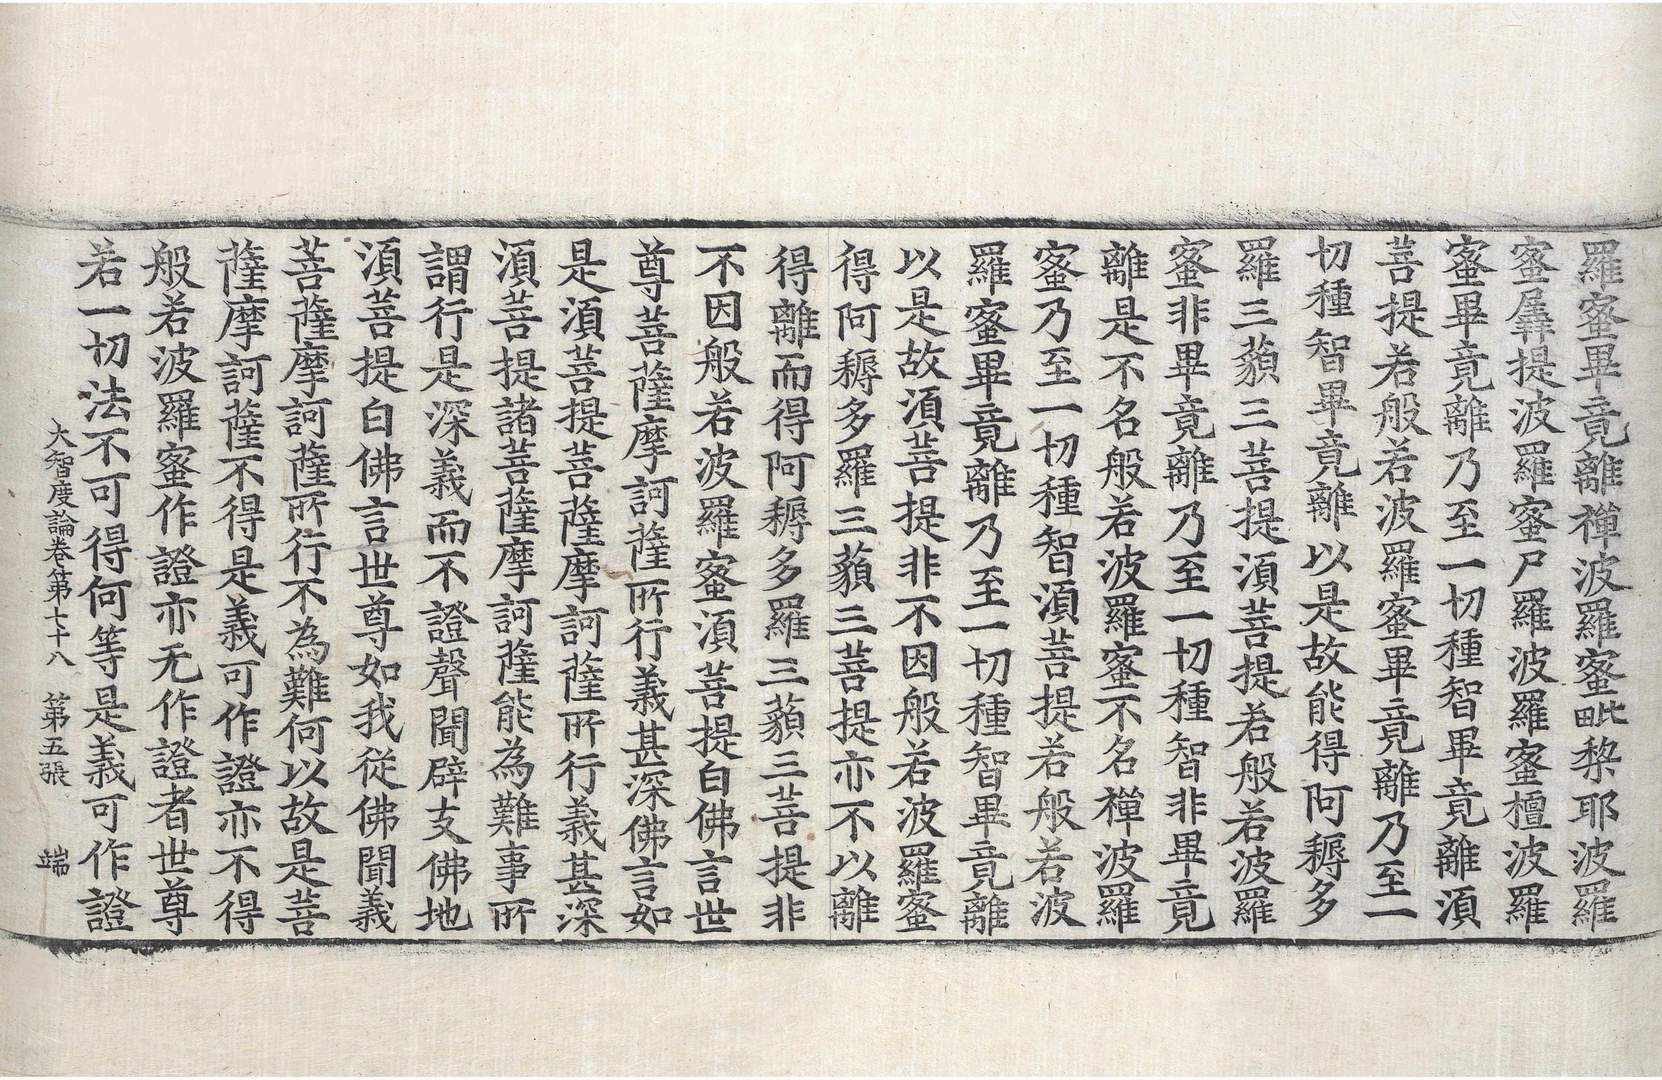 羅蜜畢竟離禪波羅蜜毗棃耶波羅
蜜羼提波羅蜜尸羅波羅蜜檀波羅
蜜畢竟離乃至一切種智畢竟離湏
菩提若般若波羅蜜畢竟離乃至一
切種智畢竟離以是故能得阿耨多
羅三藐三菩提湏菩提若般若波羅
蜜非畢竟離乃至一切種智非畢竟
離是不名般若波羅蜜不名禪波羅
蜜乃至一切種智湏菩提若般若波
羅蜜畢竟離乃至一切種智畢竟離
以是故湏菩提非不因般若波羅蜜
得阿耨多羅三藐三菩提亦不以離
得離而得阿耨多羅三藐三菩提非
不因般若波羅蜜湏菩提白佛言世
尊菩薩摩訶薩所行義甚深佛言如
是湏菩提菩薩摩訶薩所行義甚深
湏菩提諸菩薩摩訶薩能為難事所
謂行是深義而不證聲聞辟支佛地
湏菩提白佛言世尊如我從佛聞義
菩薩摩訶薩所行不為難何以故是菩
薩摩訶薩不得是義可作證亦不得
般若波羅蜜作證亦无作證者世尊
若一切法不可得何等是義可作證
大智度論卷第七十八 第五張 端